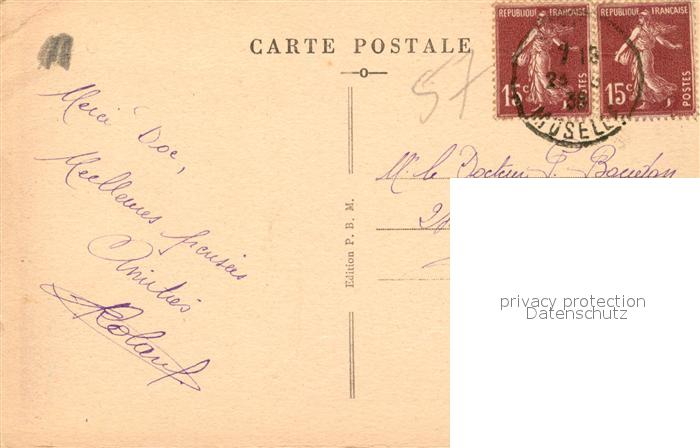 CARTE POSTALE
REPUBLIQUE FRANÇAISE
15c
POSTES
REPUBLIQUE FRANÇAISE
15c
POSTES
MOSELLE
57
Merci Doc,
Meilleures pensées
Amitiés
Roland
Edition P. B. M.
M. le Docteur
privacy protection
Datenschutz